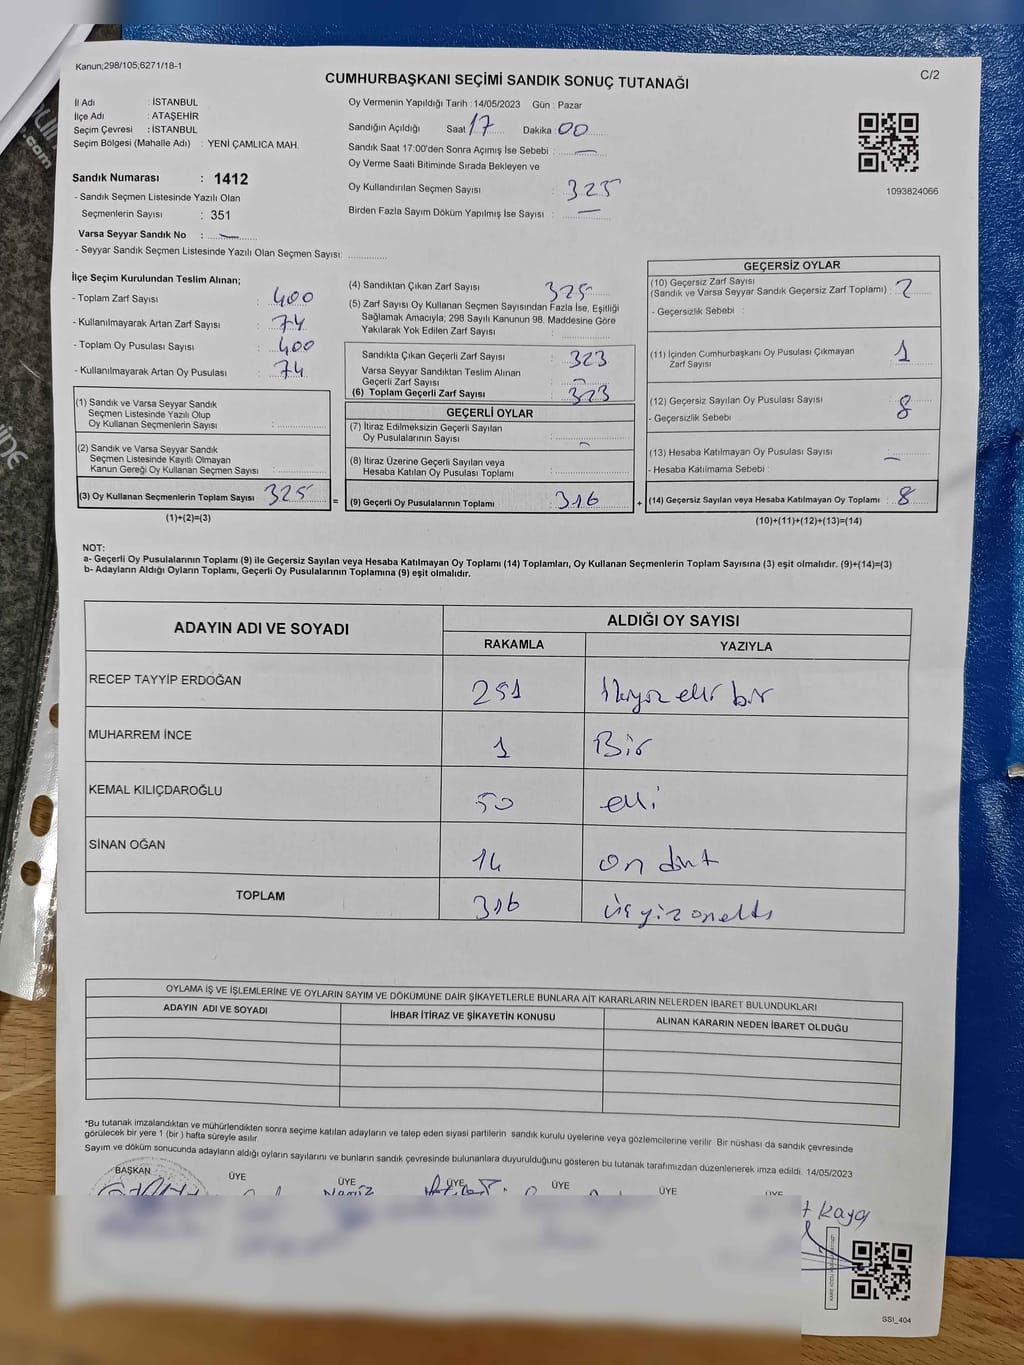 Kanun;298/105;6271/18-1
C/2
CUMHURBAŞKANI SEÇİMİ SANDIK SONUÇ TUTANAĞI
İl Adı : İSTANBUL
İlçe Adı : ATAŞEHİR
Seçim Çevresi : İSTANBUL
Seçim Bölgesi (Mahalle Adı) : YENİ ÇAMLICA MAH.
Sandık Numarası : 1412
- Sandık Seçmen Listesinde Yazılı Olan
Seçmenlerin Sayısı : 351
Varsa Seyyar Sandık No : —
- Seyyar Sandık Seçmen Listesinde Yazılı Olan Seçmen Sayısı:
Oy Vermenin Yapıldığı Tarih : 14/05/2023 Gün : Pazar
Sandığın Açıldığı Saat 17 Dakika : 00
Sandık Saat 17:00'den Sonra Açımış İse Sebebi : —
Oy Verme Saati Bitiminde Sırada Bekleyen ve
Oy Kullandırılan Seçmen Sayısı : 325
Birden Fazla Sayım Döküm Yapılmış İse Sayısı : —
1093824066
İlçe Seçim Kurulundan Teslim Alınan;
- Toplam Zarf Sayısı : 400
- Kullanılmayarak Artan Zarf Sayısı : 74
- Toplam Oy Pusulası Sayısı : 400
- Kullanılmayarak Artan Oy Pusulası : 74
(1) Sandık ve Varsa Seyyar Sandık
Seçmen Listesinde Yazılı Olup
Oy Kullanan Seçmenlerin Sayısı :
(2) Sandık ve Varsa Seyyar Sandık
Seçmen Listesinde Kayıtlı Olmayan
Kanun Gereği Oy Kullanan Seçmen Sayısı :
(3) Oy Kullanan Seçmenlerin Toplam Sayısı : 325
(1)+(2)=(3)
(4) Sandıktan Çıkan Zarf Sayısı : 325
(5) Zarf Sayısı Oy Kullanan Seçmen Sayısından Fazla İse, Eşitliği
Sağlamak Amacıyla; 298 Sayılı Kanunun 98. Maddesine Göre
Yakılarak Yok Edilen Zarf Sayısı :
Sandıkta Çıkan Geçerli Zarf Sayısı : 323
Varsa Seyyar Sandıktan Teslim Alınan
Geçerli Zarf Sayısı : —
(6) Toplam Geçerli Zarf Sayısı : 323
GEÇERLİ OYLAR
(7) İtiraz Edilmeksizin Geçerli Sayılan
Oy Pusulalarının Sayısı : —
(8) İtiraz Üzerine Geçerli Sayılan veya
Hesaba Katılan Oy Pusulası Toplamı :
= (9) Geçerli Oy Pusulalarının Toplamı : 316
GEÇERSİZ OYLAR
(10) Geçersiz Zarf Sayısı
(Sandık ve Varsa Seyyar Sandık Geçersiz Zarf Toplamı) : 2
- Geçersizlik Sebebi :
(11) İçinden Cumhurbaşkanı Oy Pusulası Çıkmayan
Zarf Sayısı : 1
(12) Geçersiz Sayılan Oy Pusulası Sayısı : 8
- Geçersizlik Sebebi
(13) Hesaba Katılmayan Oy Pusulası Sayısı : —
- Hesaba Katılmama Sebebi :
+ (14) Geçersiz Sayılan veya Hesaba Katılmayan Oy Toplamı : 8
(10)+(11)+(12)+(13)=(14)
NOT:
a- Geçerli Oy Pusulalarının Toplamı (9) ile Geçersiz Sayılan veya Hesaba Katılmayan Oy Toplamı (14) Toplamları, Oy Kullanan Seçmenlerin Toplam Sayısına (3) eşit olmalıdır. (9)+(14)=(3)
b- Adayların Aldığı Oyların Toplamı, Geçerli Oy Pusulalarının Toplamına (9) eşit olmalıdır.
ADAYIN ADI VE SOYADI ALDIĞI OY SAYISI
RAKAMLA YAZIYLA
RECEP TAYYİP ERDOĞAN 251 İkiyüz elli bir
MUHARREM İNCE 1 Bir
KEMAL KILIÇDAROĞLU 50 elli
SİNAN OĞAN 14 on dört
TOPLAM 316 üçyüz onaltı
OYLAMA İŞ VE İŞLEMLERİNE VE OYLARIN SAYIM VE DÖKÜMÜNE DAİR ŞİKAYETLERLE BUNLARA AİT KARARLARIN NELERDEN İBARET BULUNDUKLARI
ADAYIN ADI VE SOYADI İHBAR İTİRAZ VE ŞİKAYETİN KONUSU ALINAN KARARIN NEDEN İBARET OLDUĞU
*Bu tutanak imzalandıktan ve mühürlendikten sonra seçime katılan adayların ve talep eden siyasi partilerin sandık kurulu üyelerine veya gözlemcilerine verilir. Bir nüshası da sandık çevresinde
görülecek bir yere 1 (bir) hafta süreyle asılır.
Sayım ve döküm sonucunda adayların aldığı oyların sayılarını ve bunların sandık çevresinde bulunanlara duyurulduğunu gösteren bu tutanak tarafımızdan düzenlenerek imza edildi. 14/05/2023
BAŞKAN ÜYE ÜYE ÜYE ÜYE ÜYE ÜYE
Kaya
SSI_404